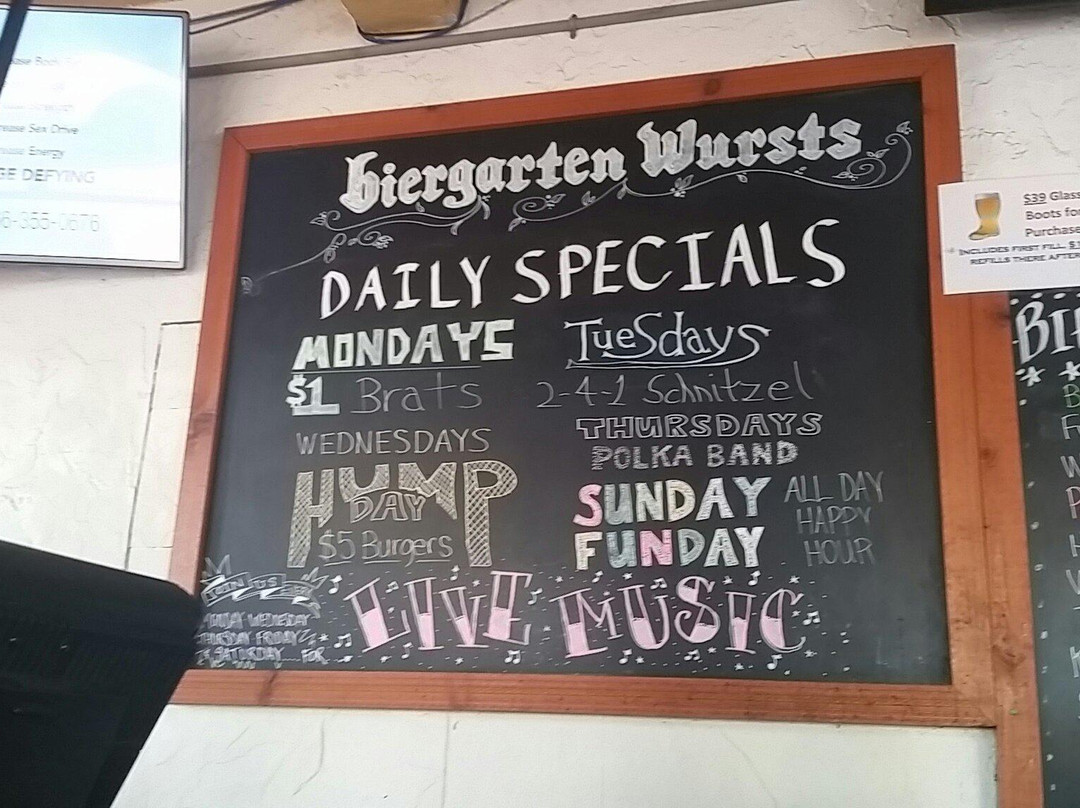 rease Sex Drive
Energy
GE DEFYING
6-355-0676
biergarten Wursts
DAILY SPECIALS
MONDAYS
$1 Brats
TUeSdays
2-4-1 Schnitzel
WEDNESDAYS
HUMP
DAY
$5 Burgers
THURSDAYS
POLKA BAND
SUNDAY
FUNDAY
ALL DAY
HAPPY
HOUR
JOIN US
WEDNESDAY
THURSDAY FRIDAY
SATURDAY.... FOR
LIVE MUSIC
$39 Glass
Boots for
Purchase
INCLUDES FIRST FILL, $1
REFILLS THERE AFTER
BI